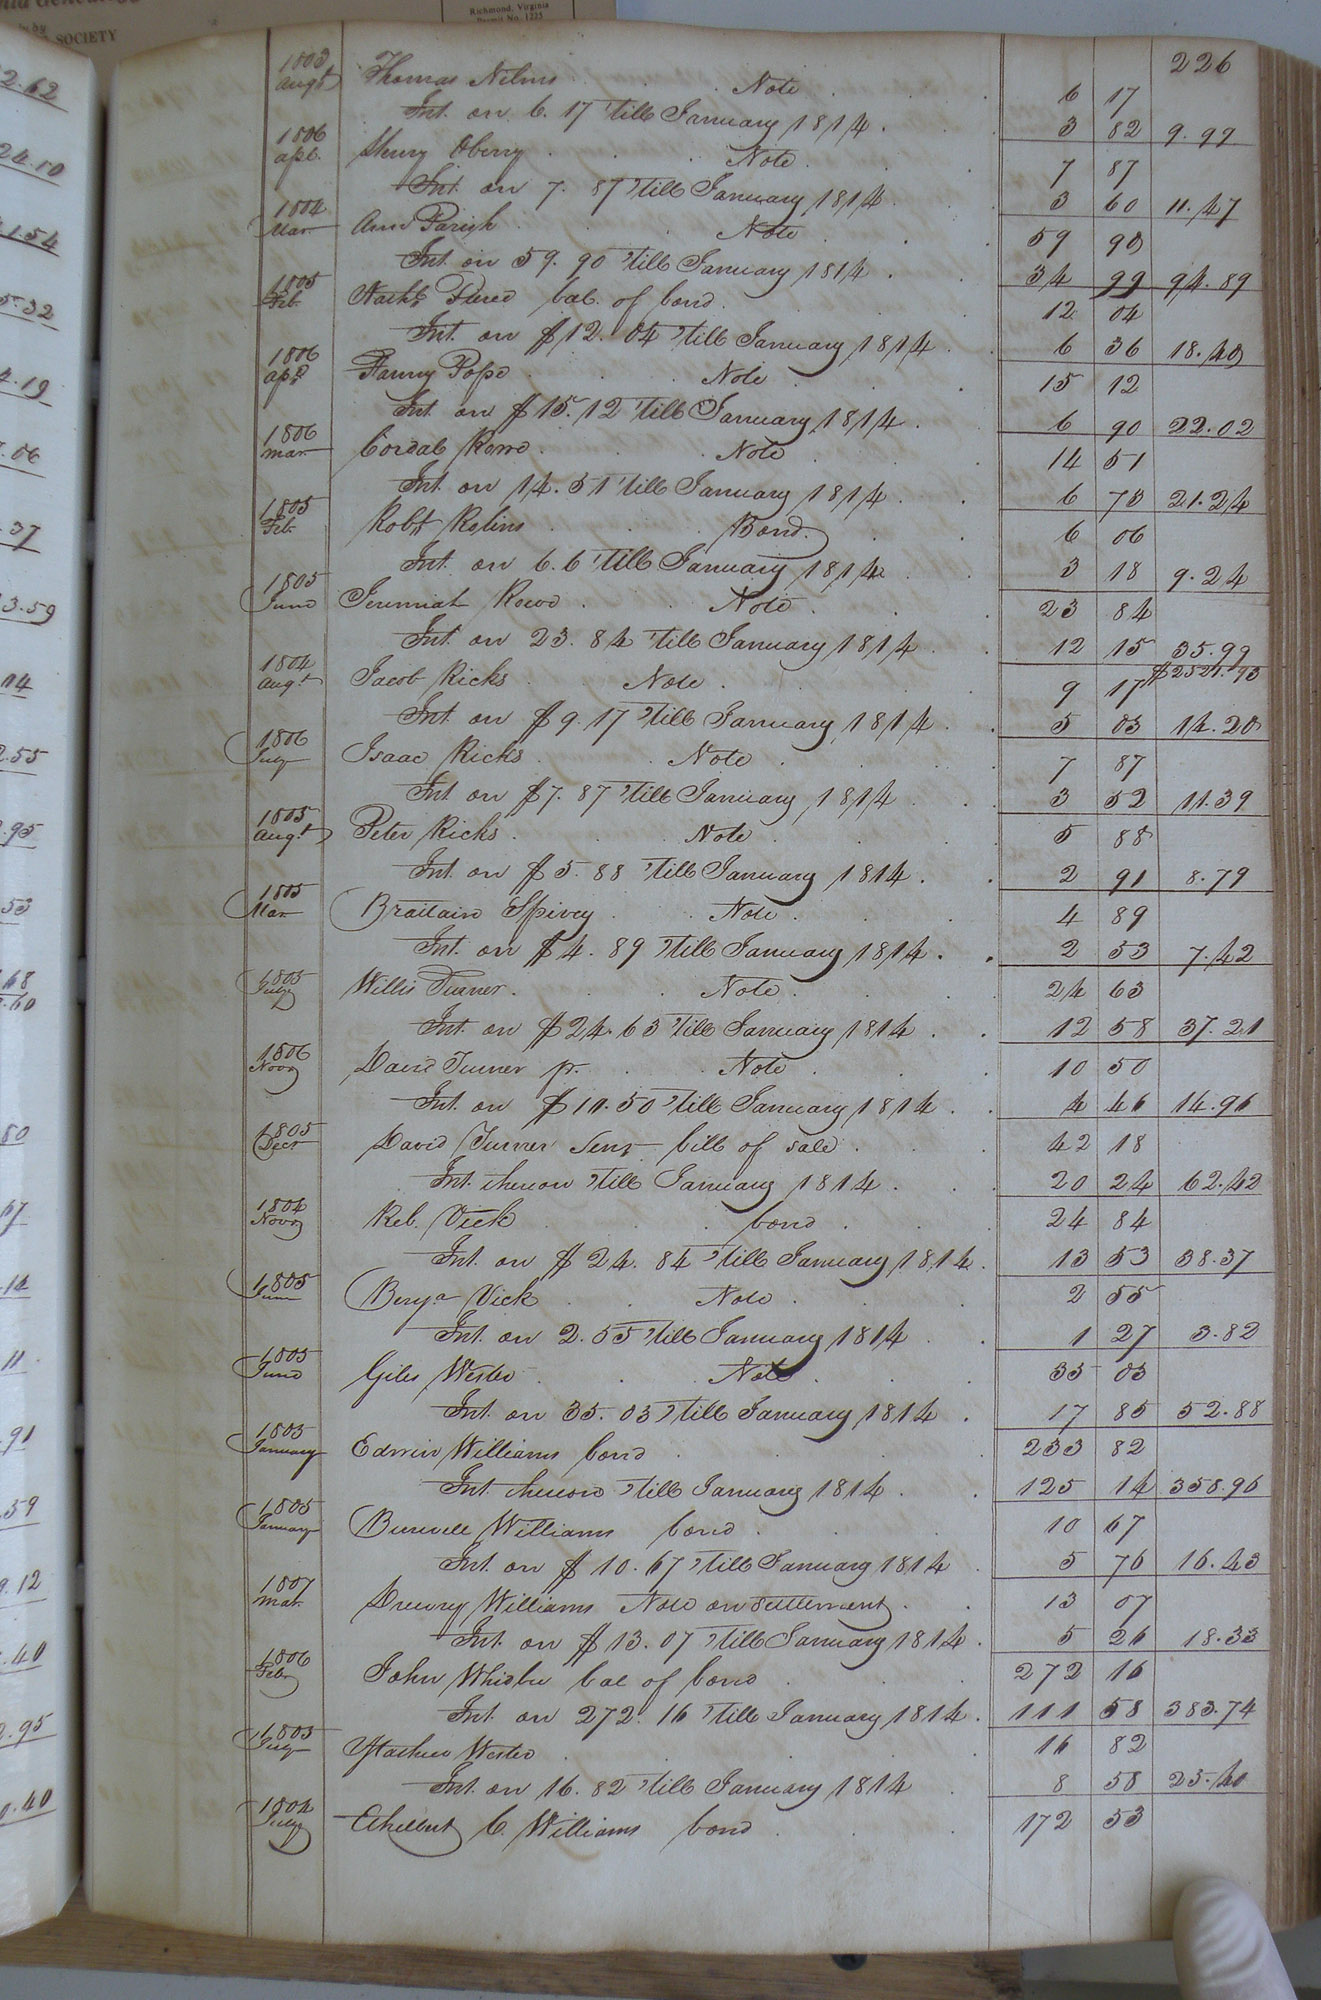 Richmond, Virginia
Permit No. 1225
SOCIETY
226
1803 Augt Thomas Nelms Note 6 17
Int. on 6.17 'till January 1814. 3 82 9.99
1806 apl. Henry Oberry Note 7 87
Int. on 7.87 'till January 1814 3 60 11.47
1804 Mar Ann Parish Note 59 90
Int. on 59.90 'till January 1814. 34 99 94.89
1805 Feb. bal. of bond. 12 04
Int. on $12.04 'till January 1814 6 36 18.40
1806 apl Fanny Pope Note 15 12
Int. on $15.12 'till January 1814. 6 90 22.02
1806 mar Cordal Note 14 51
Int. on 14.51 'till January 1814 6 73 21.24
1805 Feb. Robt Rolins Bond. 6 06
Int. on 6.6 'till January 1814 3 18 9.24
1805 June Jeremiah Note 23 84
Int. on 23.84 'till January 1814 12 15 35.99
$2521.93
1804 Augt Jacob Ricks Note 9 17
Int. on $9.17 'till January 1814 5 03 14.20
1806 July Isaac Ricks Note 7 87
Int. on $7.87 'till January 1814 3 52 11.39
1805 Augt Peter Ricks Note 5 88
Int. on $5.88 'till January 1814. 2 91 8.79
1805 Mar Spivey Note 4 89
Int. on $4.89 'till January 1814. 2 53 7.42
1805 July Willis Turner. Note 24 63
Int. on $24.63 'till January 1814 12 58 37.21
1806 Novr David Turner jr. Note 10 50
Int. on $10.50 'till January 1814 4 46 14.96
1805 Decr David Turner Senr bill of sale 42 18
Int. thereon 'till January 1814 20 24 62.42
1804 Novr Reb. Vick bond 24 84
Int. on $24.84 'till January 1814. 13 53 38.37
1805 June Benja Vick Note 2 55
Int. on 2.55 'till January 1814 1 27 3.82
1805 June Giles Wester Note 35 03
Int. on 35.03 'till January 1814 17 85 52.88
1805 January Edwin Williams bond 233 82
Int. thereon 'till January 1814. 125 14 358.96
1805 January Burwell Williams bond 10 67
Int. on $10.67 'till January 1814 5 76 16.43
1807 mar. Drewry Williams Note on settlement 13 07
Int. on $13.07 'till January 1814. 5 26 18.33
1806 Feby John bal of bond 272 16
Int. on 272.16 'till January 1814. 111 58 383.74
1805 July Wester 16 82
Int. on 16.82 'till January 1814 8 58 25.40
1804 July C. Williams bond 172 53